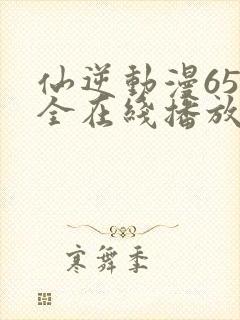 仙逆動漫65
全在綫播放
寒舞季